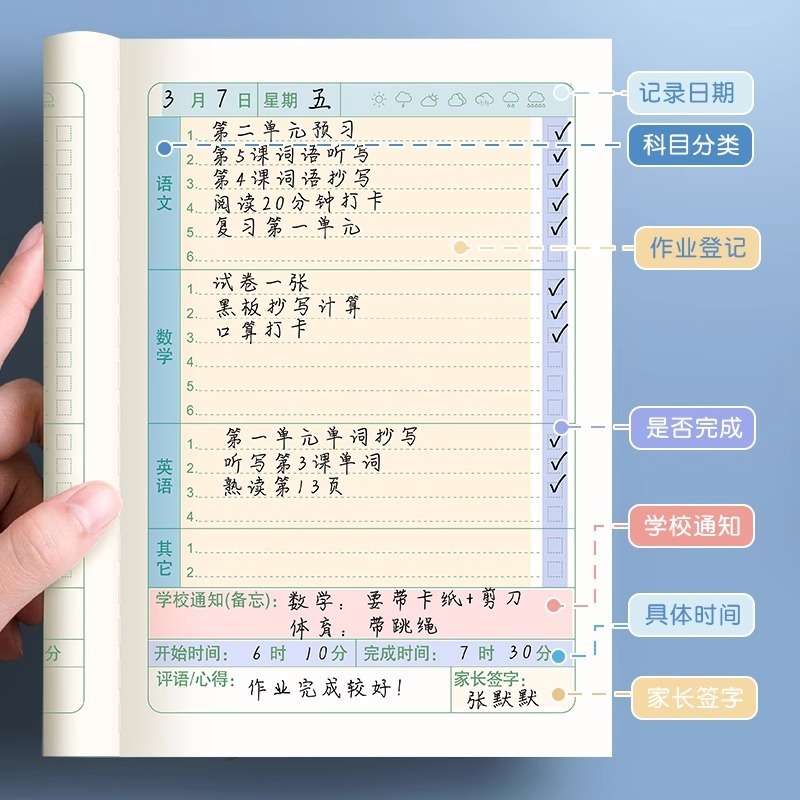 3月7日 星期 五
记录日期
语文
科目分类
1. 第二单元预习
2. 第5课词语听写
3. 第4课词语抄写
4. 阅读20分钟打卡
5. 复习第一单元
6.
作业登记
数学
1. 试卷一张
2. 黑板抄写计算
3. 口算打卡
4.
5.
6.
英语
1. 第一单元单词抄写
2. 听写第3课单词
3. 熟读第13页
4.
是否完成
其它
1.
2.
学校通知
学校通知(备忘): 数学: 要带卡纸+剪刀
体育: 带跳绳
具体时间
开始时间: 6时 10分 完成时间: 7时 30分
分
评语/心得: 作业完成较好!
家长签字: 张默默
家长签字